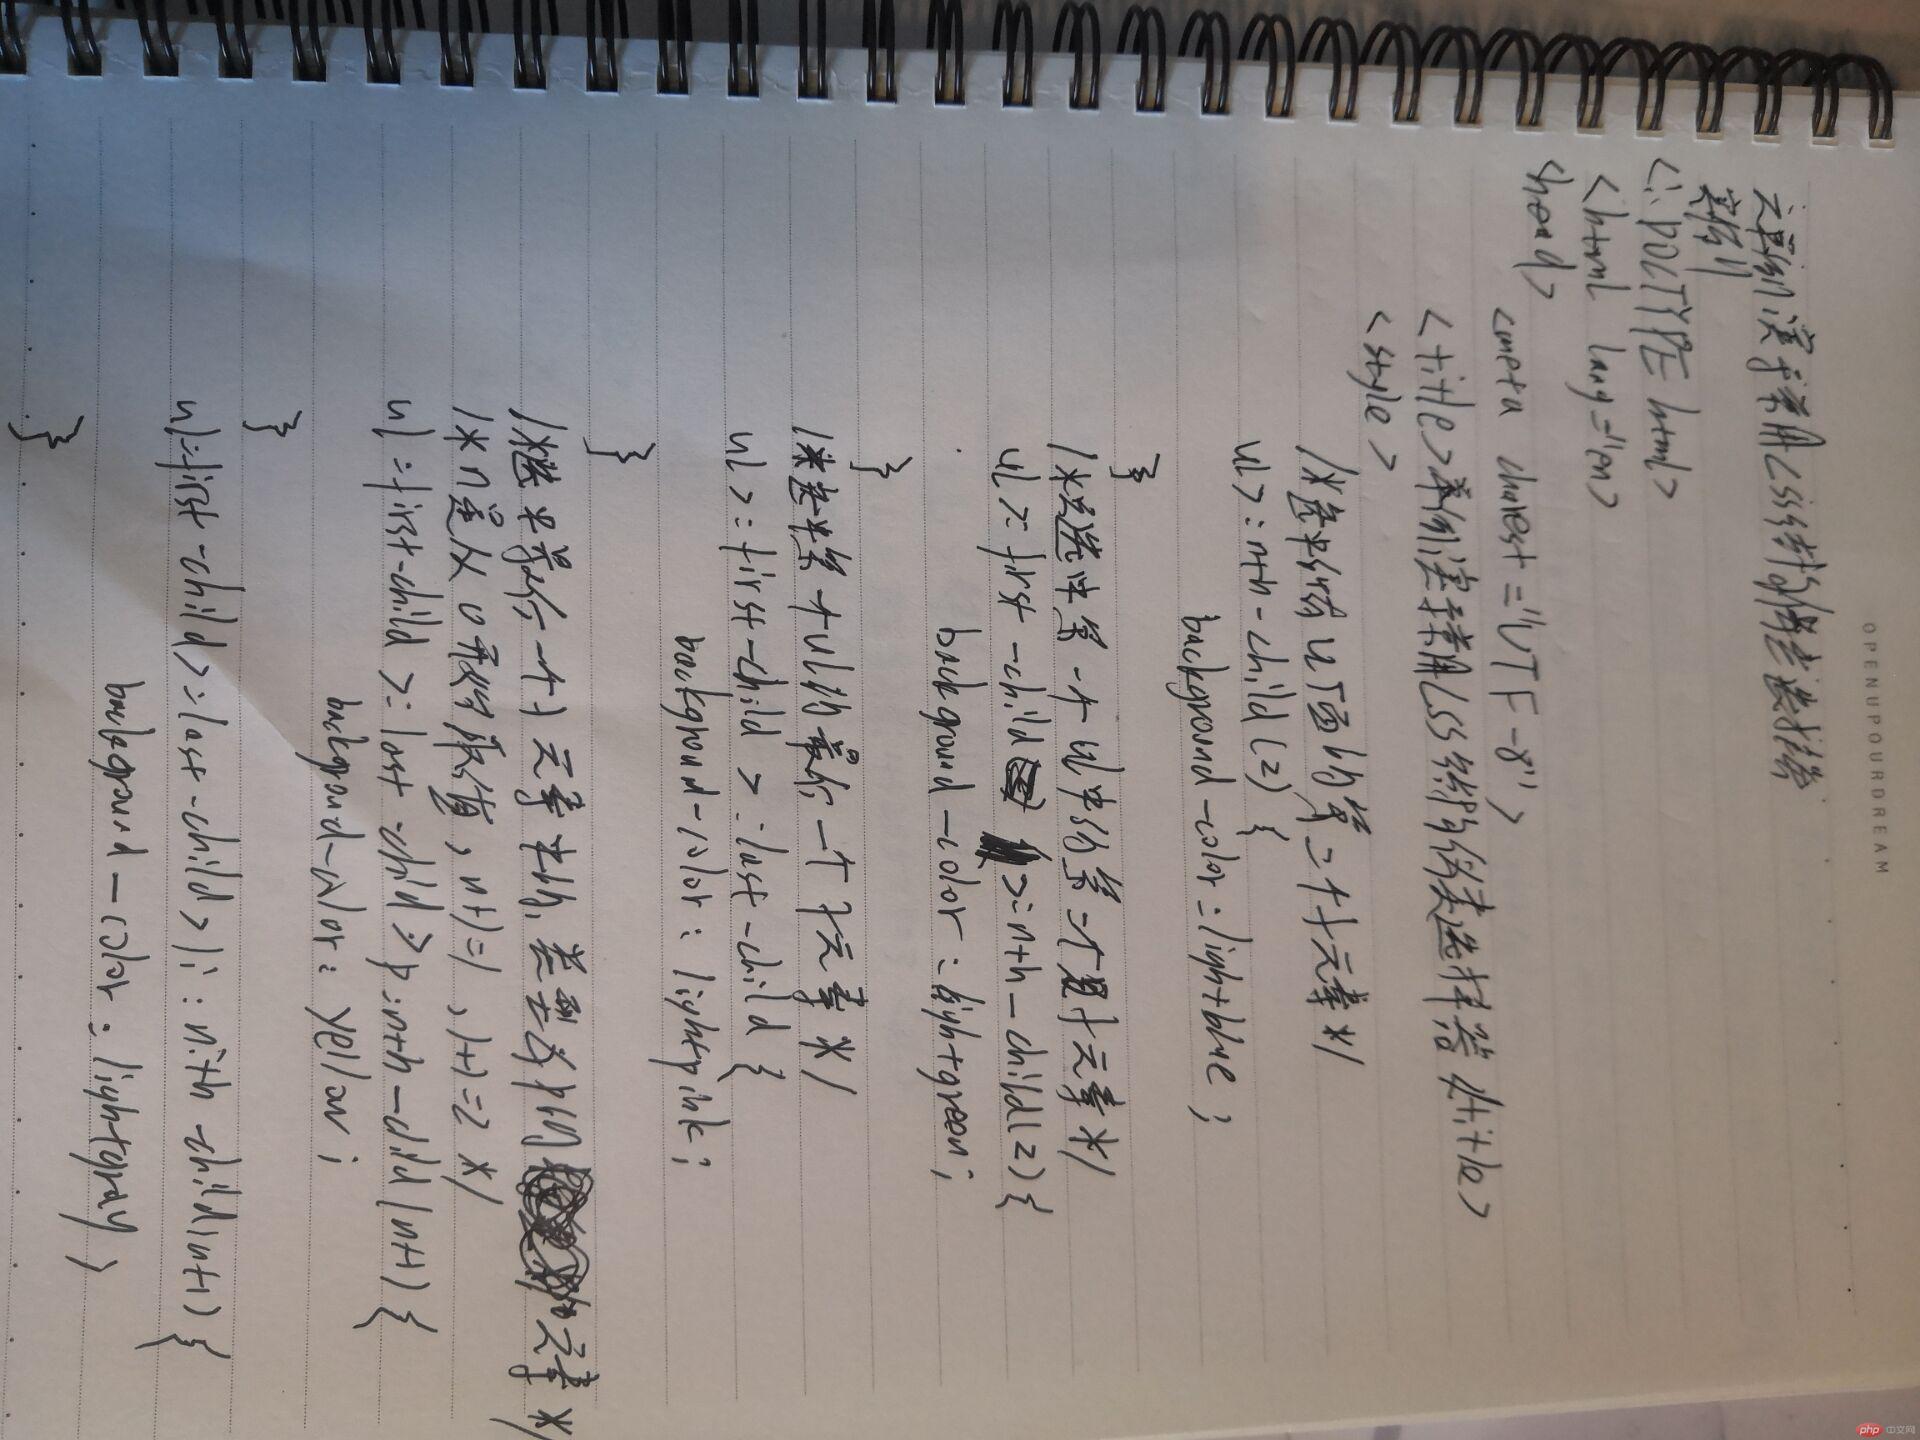 OPENUPOURDREAM
举例演示常用CSS结构伪类选择器
案例
<!DOCTYPE html>
<html lang="en">
<head>
<meta charest="UTF-8">
<title>举例演示常用CSS结构伪类选择器</title>
<style>
/*选中的ul下面的第二个li元素*/
ul>:nth-child(2){
background-color:lightblue;
}
/*选中第一个ul中的第二个是li元素*/
ul>:first-child >:nth-child(2){
background-color:lightgreen;
}
/*选中第一个ul的最后一个li元素*/
ul>:first-child>:last-child{
background-color:lightpink;
}
/*选中最后一个li元素中的,是的元素*/
/*n是从0开始取值,n+1=1,1+1=2*/
ul:first-child>:last-child>p:nth-child(n+1){
background-color:yellow;
}
ul:first-child>:last-child>li:nth-child(n+1){
background-color:lightgray;
}
php中文网